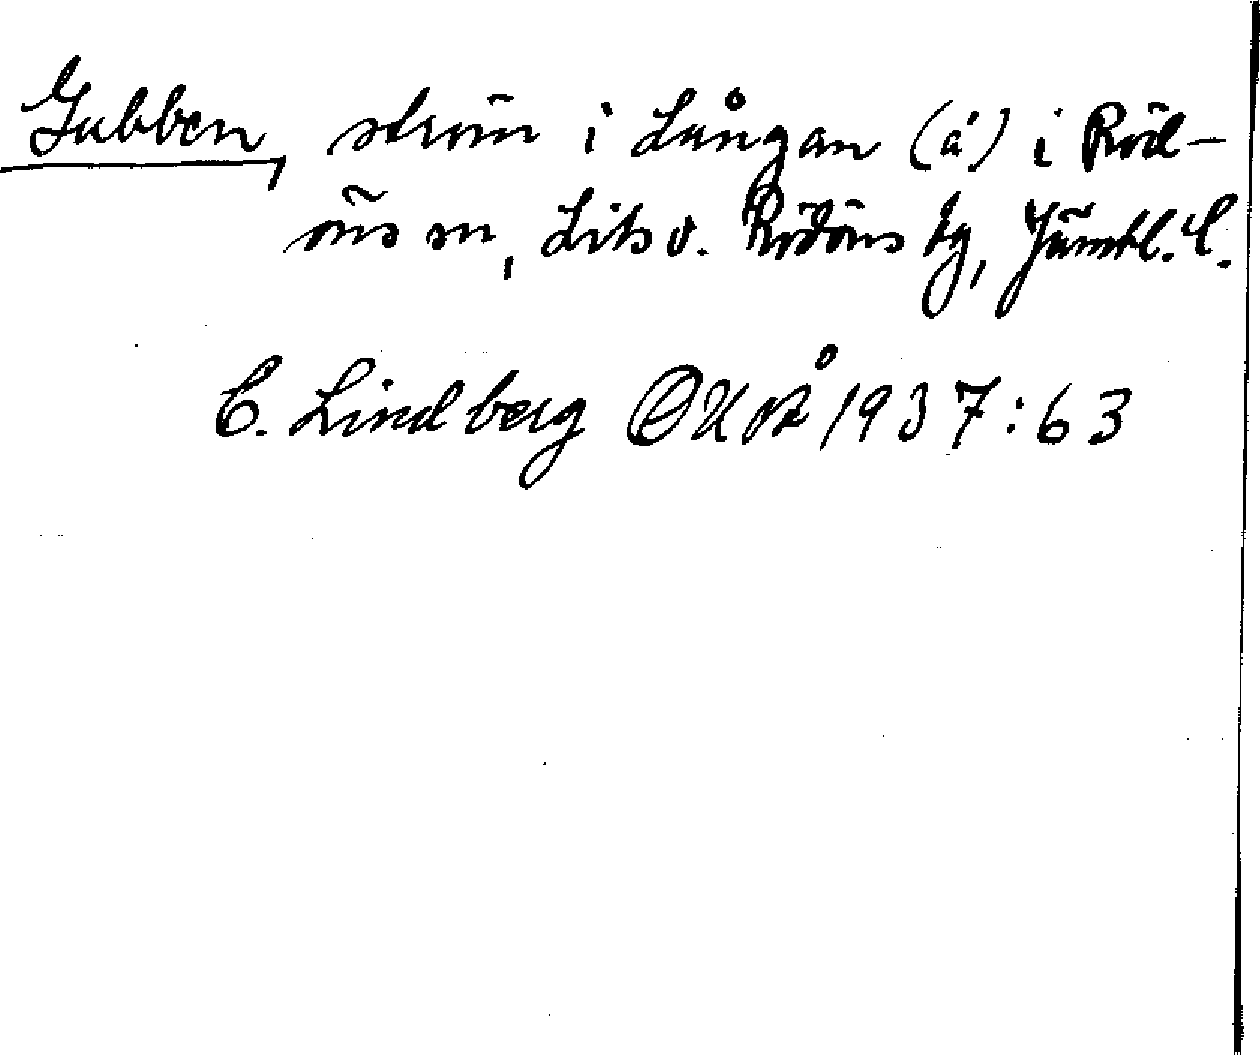 Gubben, ström i Långan (å) i Röd-
öns sn, Lits o. Rödöns tg, Jämtl. l.
C. Lindberg ÖUOÅ 1937:63